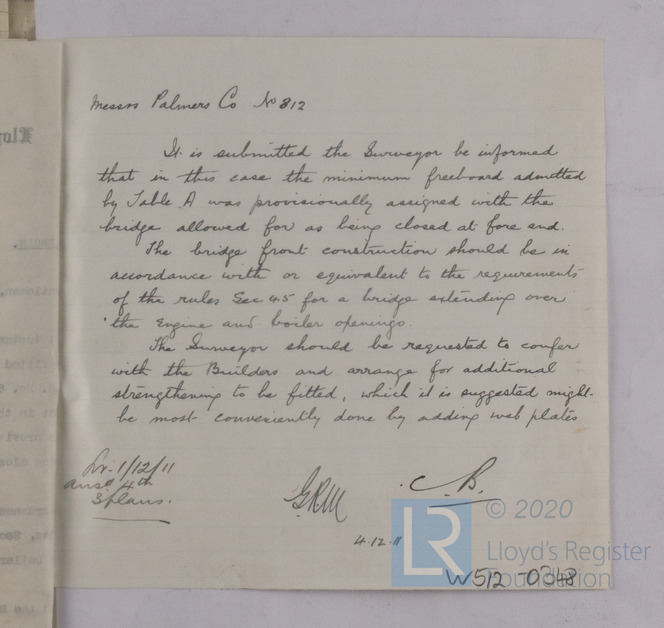 Messrs Palmers Co No 812
It is submitted the Surveyor be informed
that in this case the minimum freeboard admitted
by Table A was provisionally assigned with the
bridge allowed for as being closed at fore end.
The bridge front construction should be in
accordance with or equivalent to the requirements
of the rules Sec 45 for a bridge extending over
the Engine and boiler openings.
The Surveyor should be requested to confer
with the Builders and arrange for additional
strengthening to be fitted, which it is suggested might
be most conveniently done by adding web plates
Lr. 1/12/11
ansd 4th
3 plans.
GRM
B.
4.12.11
LR
© 2020
Lloyd's Register
Foundation
W512-0348